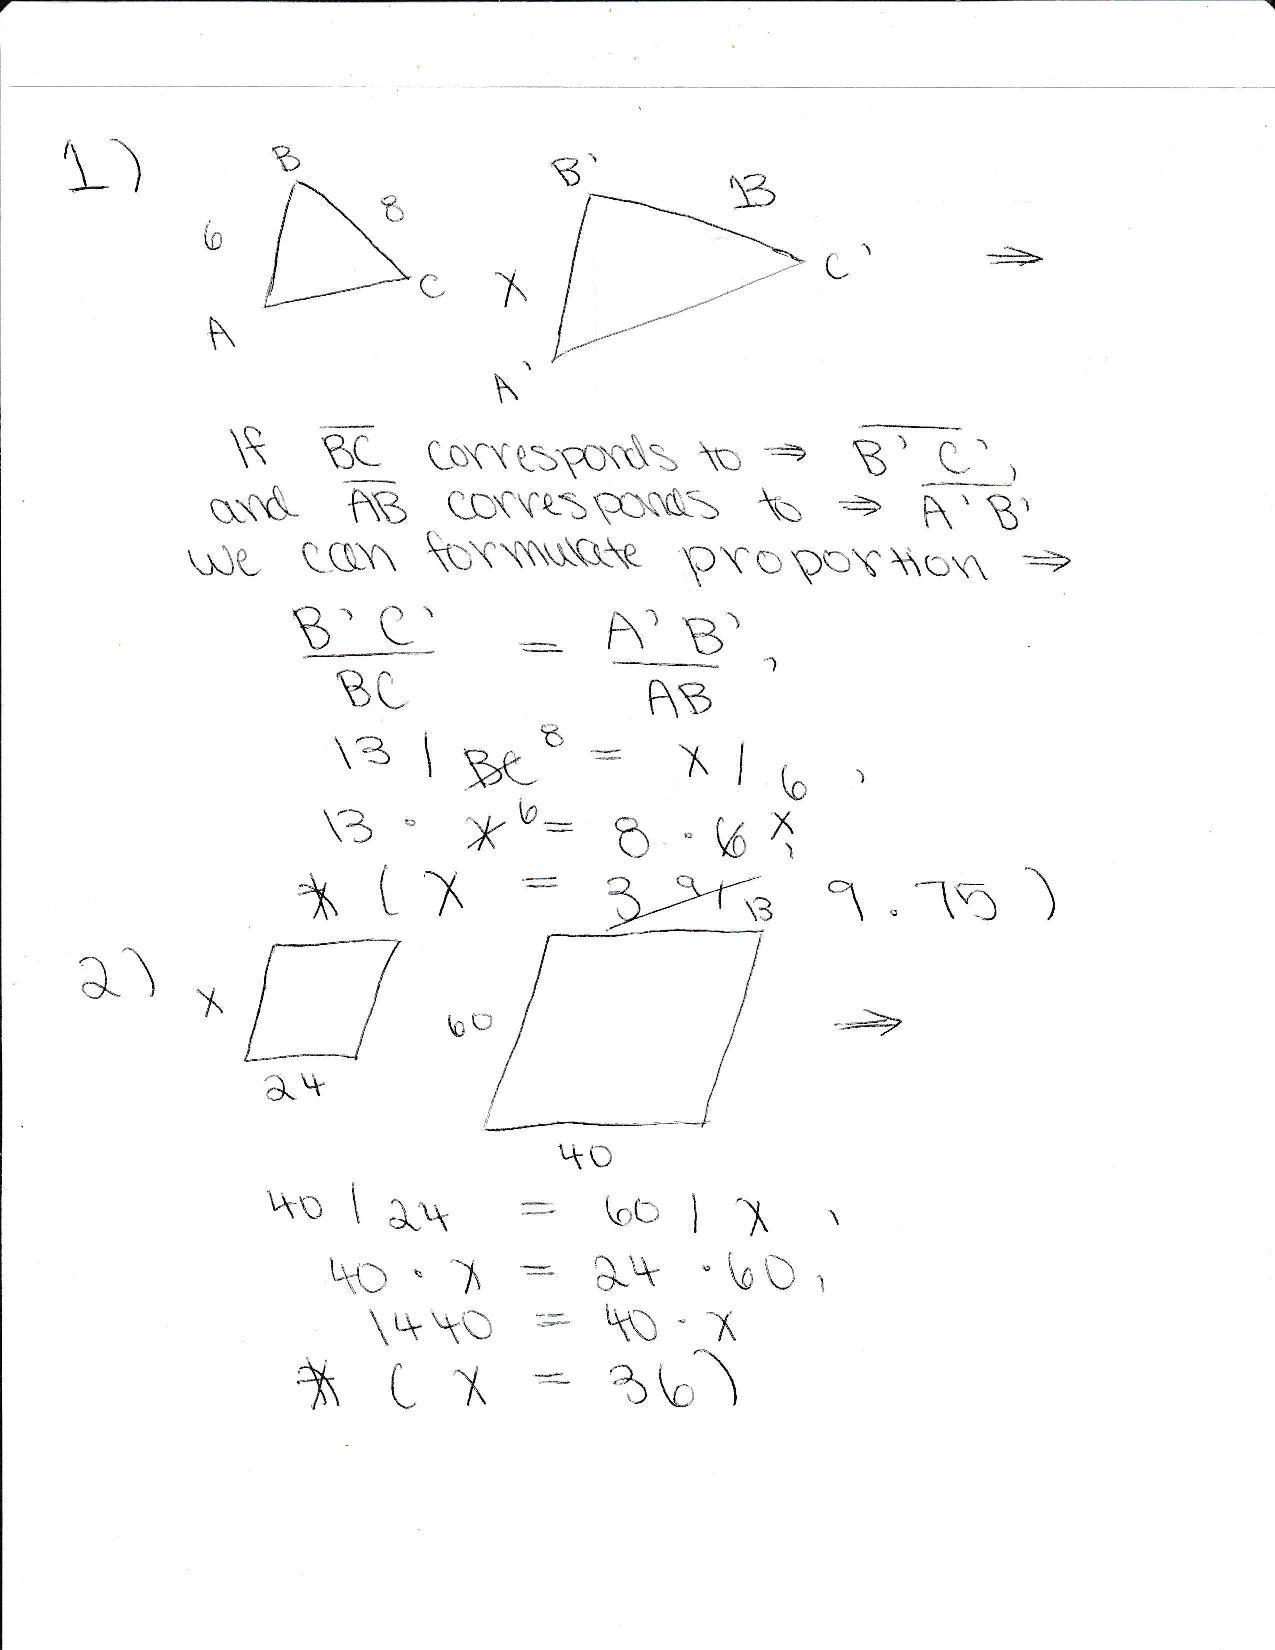 1)
B
6
8
A
C
B'
13
X
C'
A'
⇒
If BC corresponds to ⇒ B'C',
and AB corresponds to ⇒ A'B'
we can formulate proportion ⇒
B'C' / BC = A'B' / AB,
13 / 8 = x / 6,
13 · 6 = 8 · x,
* ( x = 9.75 )
2)
x
24
60
40
⇒
40 / 24 = 60 / x,
40 · x = 24 · 60,
1440 = 40 · x
* ( x = 36 )